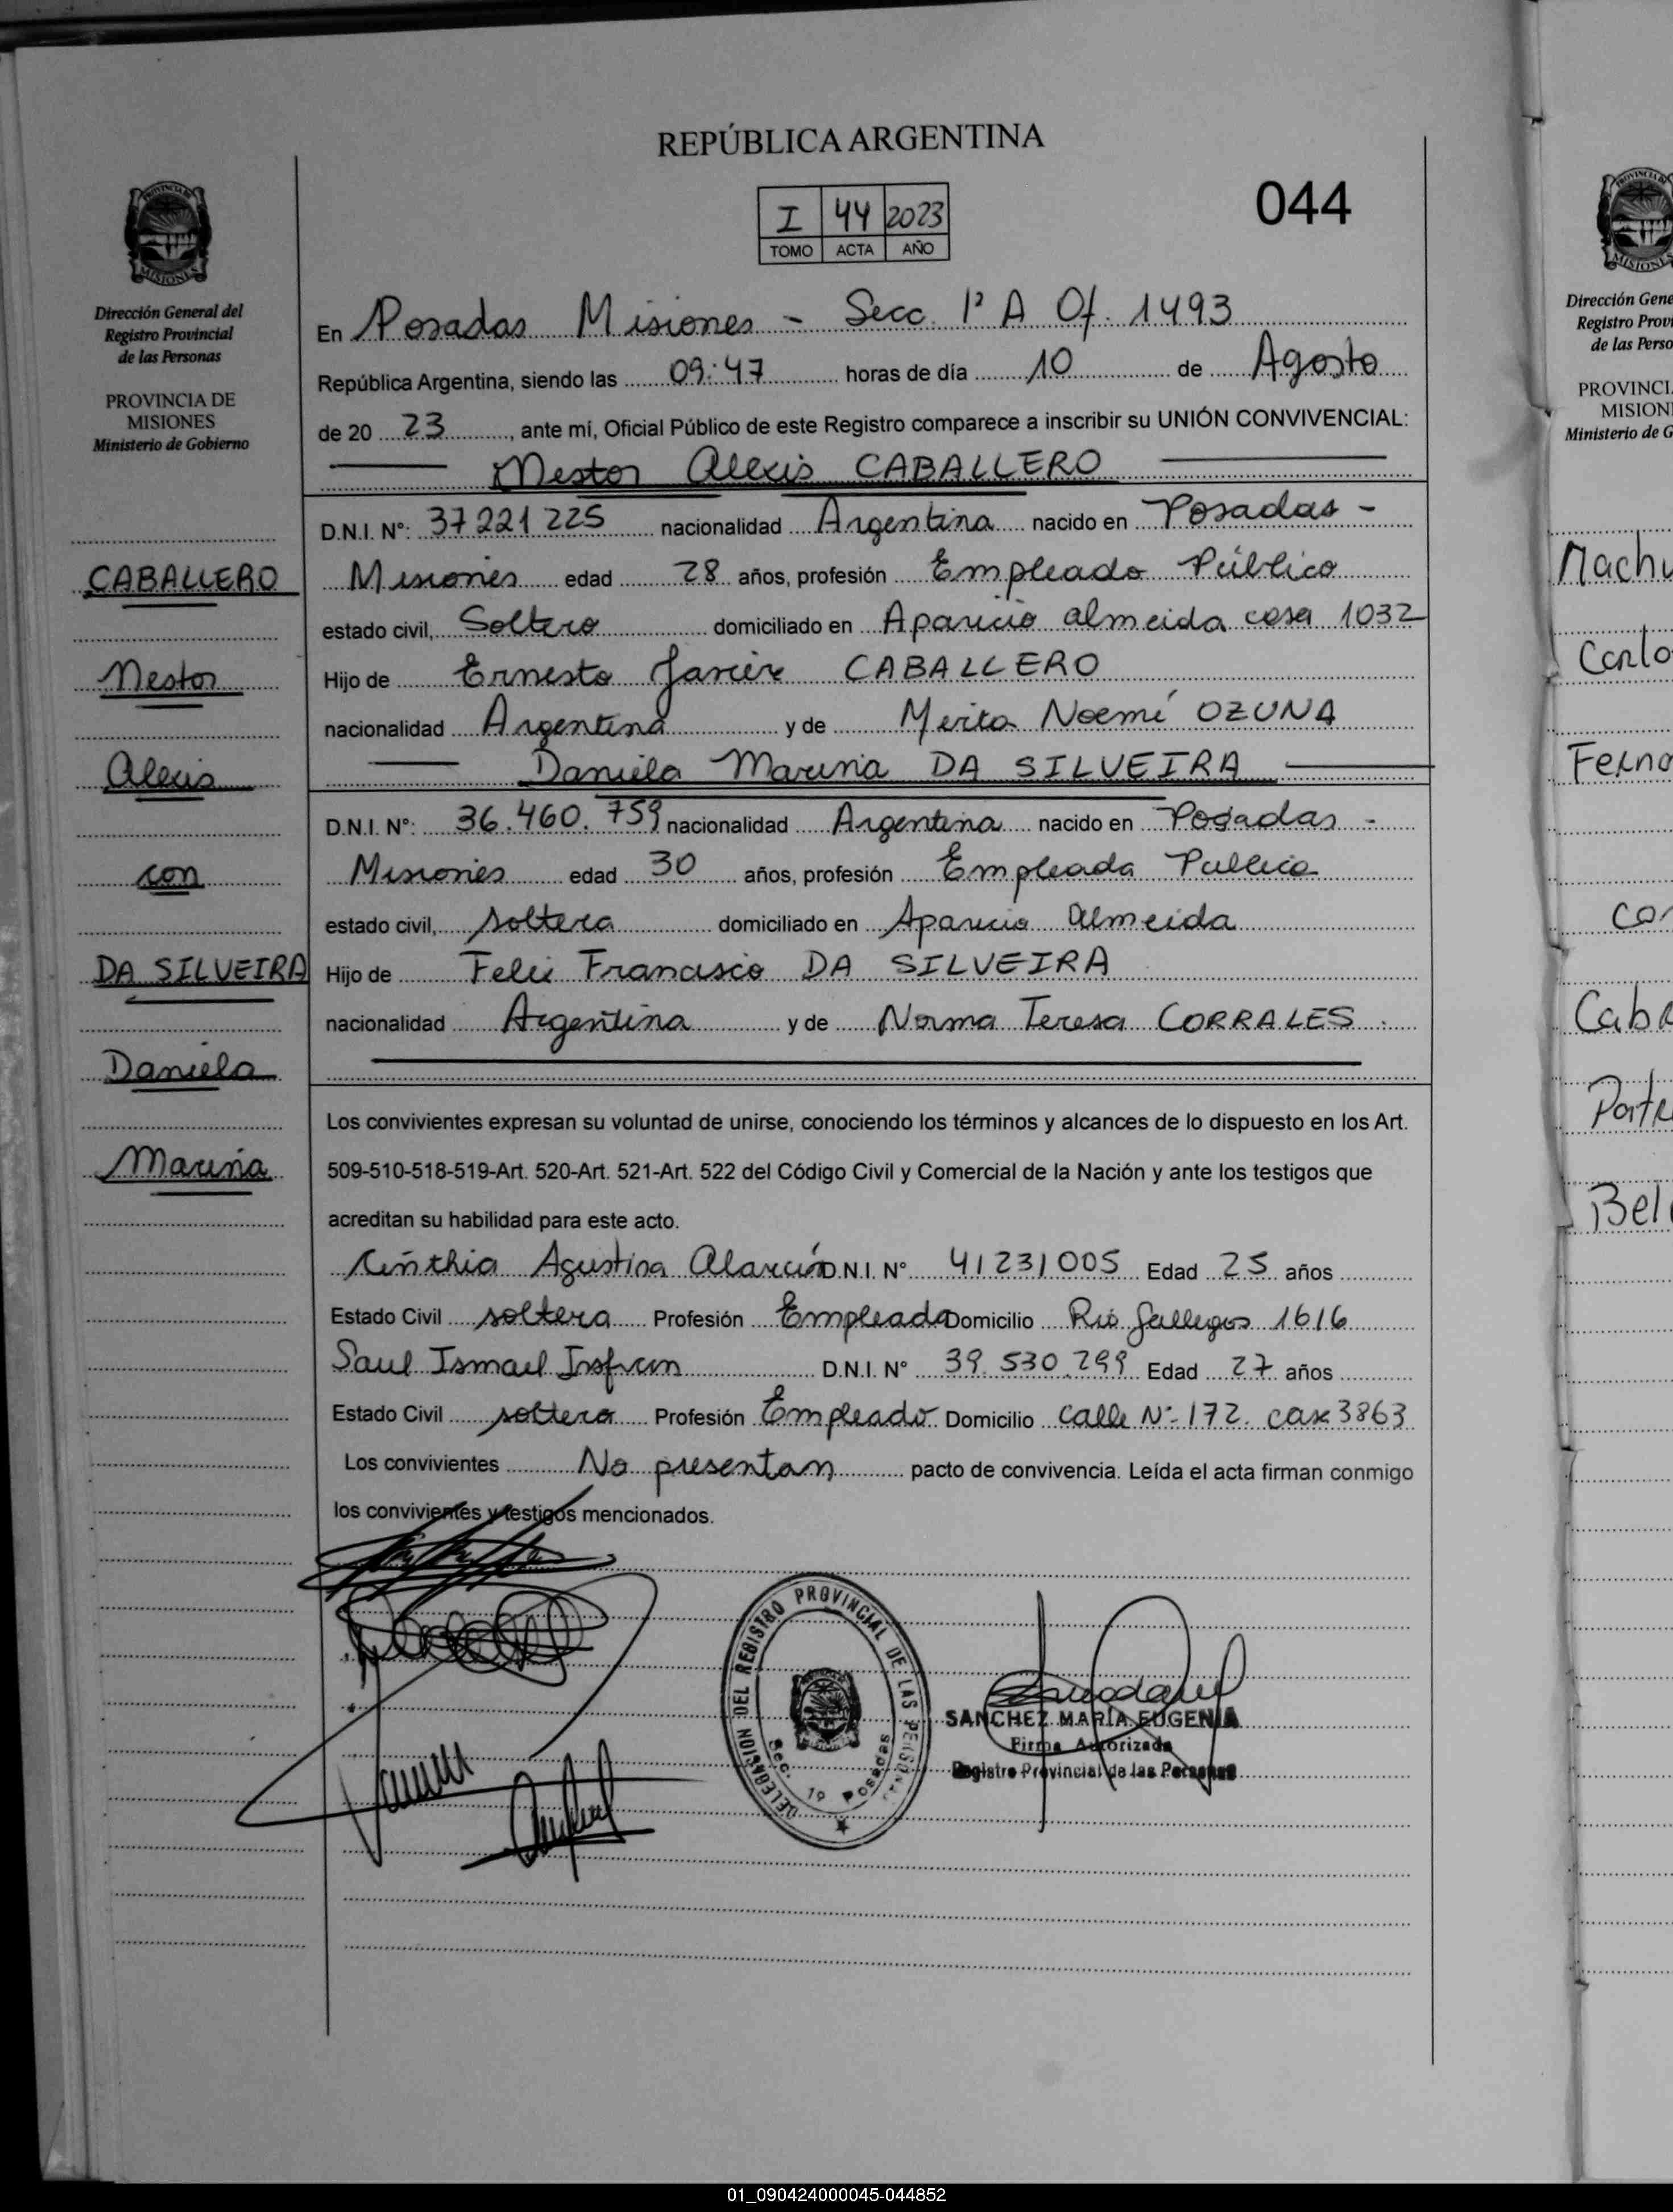 REPÚBLICA ARGENTINA
044
I 44 2023
TOMO ACTA AÑO
PROVINCIA DE
MISIONES
Dirección General del
Registro Provincial
de las Personas
PROVINCIA DE
MISIONES
Ministerio de Gobierno
CABALLERO
Nestor
Alexis
con
DA SILVEIRA
Daniela
Marina
En Posadas Misiones - Secc. 1ª A Of. 1493
República Argentina, siendo las 09:47 horas de día 10 de Agosto
de 20 23, ante mí, Oficial Público de este Registro comparece a inscribir su UNIÓN CONVIVENCIAL:
Nestor Alexis CABALLERO
D.N.I. Nº: 37221225 nacionalidad Argentina nacido en Posadas -
Misiones edad 28 años, profesión Empleado Público
estado civil, Soltero domiciliado en Aparicio almeida casa 1032
Hijo de Ernesto Javier CABALLERO
nacionalidad Argentina y de Mirta Noemí OZUNA
Daniela Marina DA SILVEIRA
D.N.I. Nº: 36.460.759 nacionalidad Argentina nacido en Posadas -
Misiones edad 30 años, profesión Empleada Publica
estado civil, soltera domiciliado en Aparicio Almeida
Hijo de Felix Francisco DA SILVEIRA
nacionalidad Argentina y de Norma Teresa CORRALES
Los convivientes expresan su voluntad de unirse, conociendo los términos y alcances de lo dispuesto en los Art.
509-510-518-519-Art. 520-Art. 521-Art. 522 del Código Civil y Comercial de la Nación y ante los testigos que
acreditan su habilidad para este acto.
Cinthia Agustina Alarcón D.N.I. Nº 41231005 Edad 25 años
Estado Civil soltera Profesión Empleada Domicilio Río Gallegos 1616
Saul Ismael Insfran D.N.I. Nº 39.530.299 Edad 27 años
Estado Civil soltero Profesión Empleado Domicilio Calle Nº 172. casa 3863
Los convivientes No presentan pacto de convivencia. Leída el acta firman conmigo
los convivientes y testigos mencionados.
DELEGACION DEL REGISTRO PROVINCIAL DE LAS PERSONAS
Sec. 1º Posadas
SANCHEZ MARIA EUGENIA
Firma Autorizada
Registro Provincial de las Personas
Dirección Gene
Registro Provi
de las Perso
PROVINCI
MISION
Ministerio de G
Machu
Carlo
Ferna
co
Caba
Patr
Bel
01_090424000045-044852